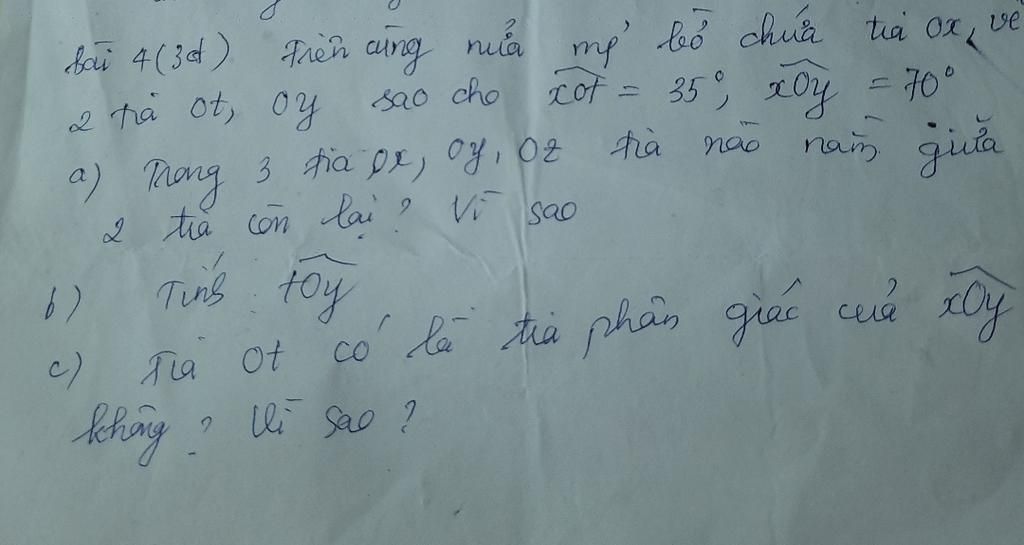 bài 4 (3đ) Trên cùng nửa mp bờ chứa tia Ox, vẽ
2 tia Ot, Oy sao cho xOt = 35°, xOy = 70°
a) Trong 3 tia Ox, Oy, Oz tia nào nằm giữa
2 tia còn lại? Vì sao
b) Tính tOy
c) Tia Ot có là tia phân giác của xOy
không? Vì sao?